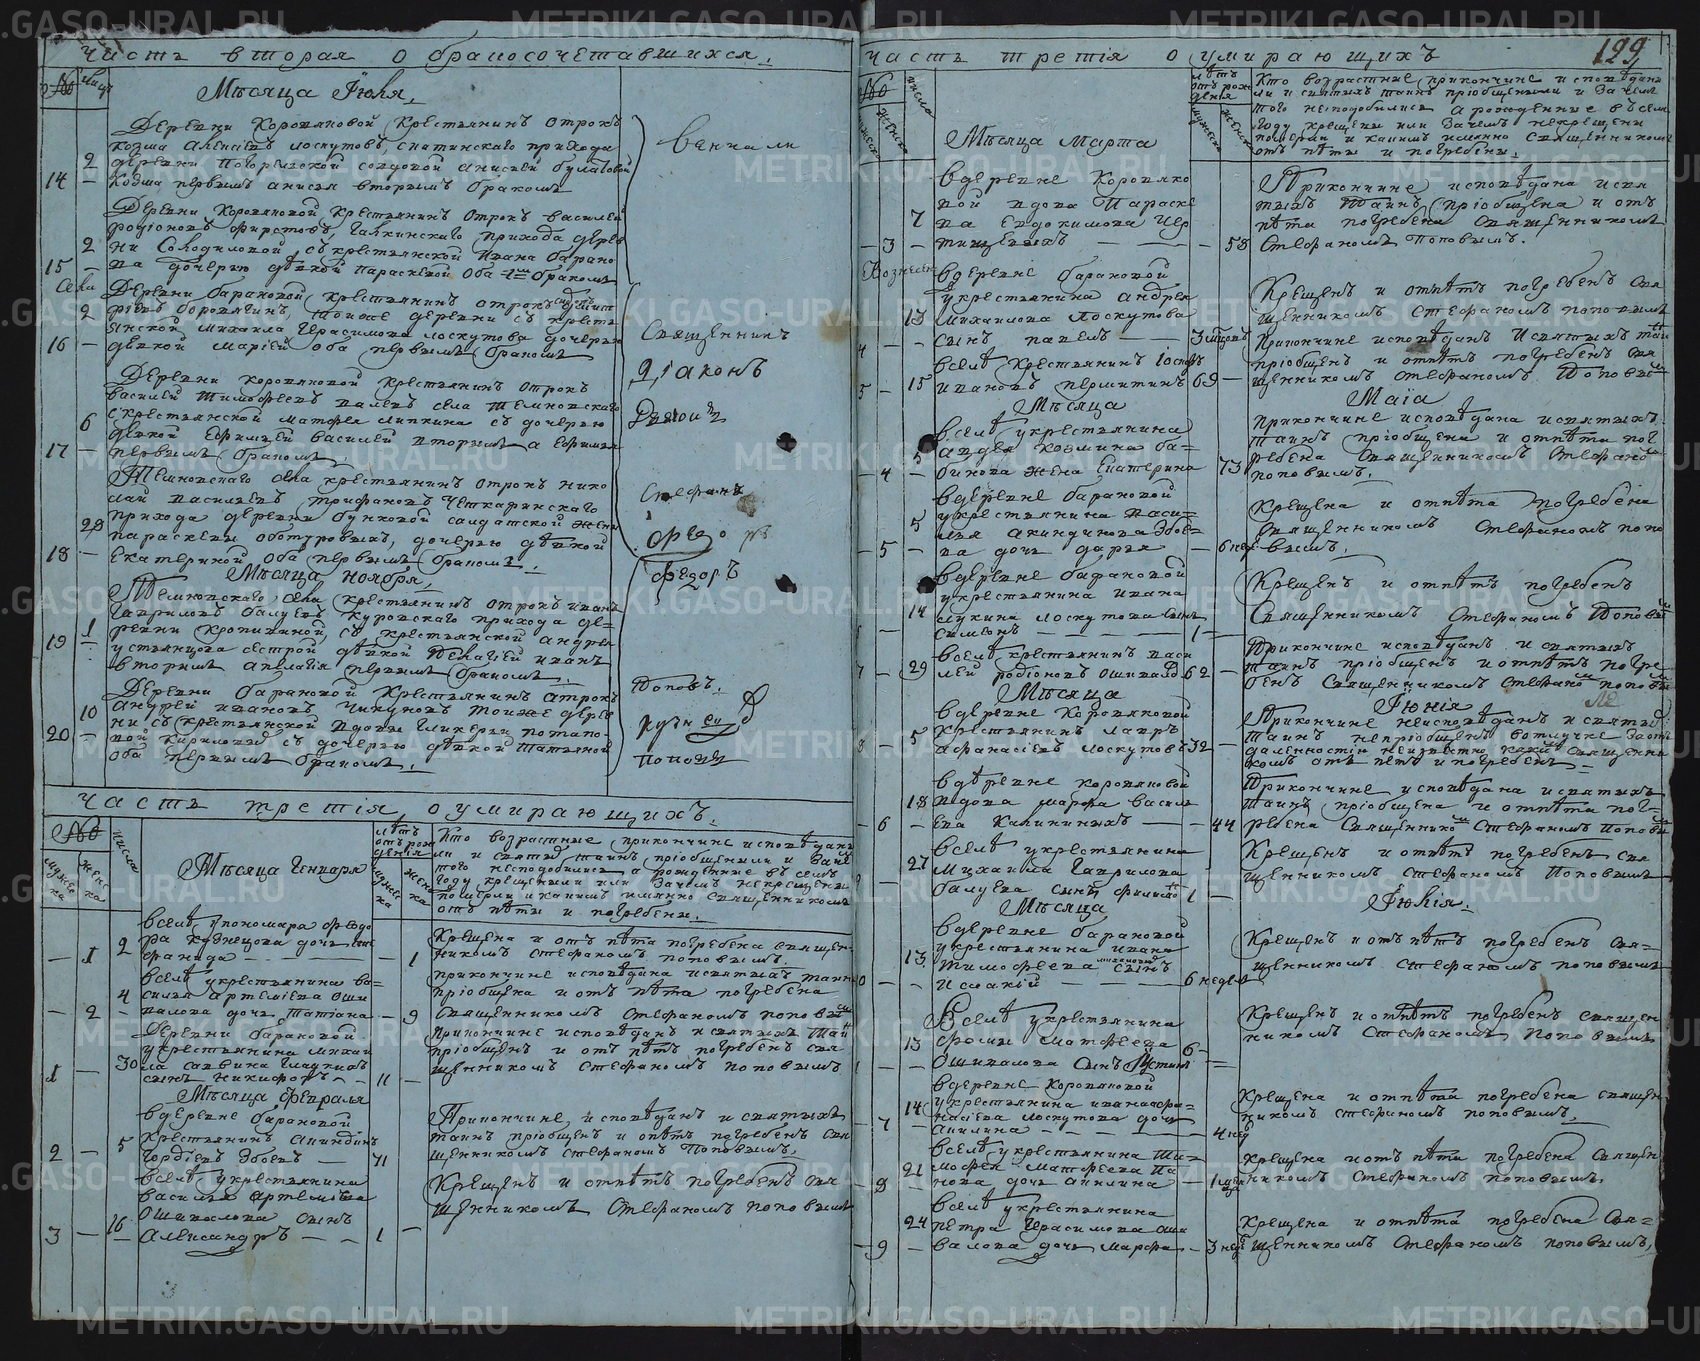 часть вторая о бракосочетавшихся.
Мѣсяца Іюля,
Деревни Коровяковой Крестьянинъ отрокъ
козма Алексѣевъ лоскутовъ, прихода
2 деревни солдатской анисьей булатовой
14 — Козма первымъ анисья вторымъ бракомъ
Деревни Коровяковой Крестьянинъ отрокъ василей
родіоновъ фирстовъ, Галкинскаго прихода дерев
2 ни Солодиловой, съ крестьянской Ивана барано
15 — ва дочерью дѣвкой параскевой оба бракомъ
Деревни барановой крестьянинъ отрокъ
2 тоюже деревни съ кресть
янской михаила Герасимова лоскутова дочерью
16 — дѣвкой маріей оба первымъ бракомъ
Деревни Коровяковой крестьянинъ отрокъ
василей Тимофеевъ села Темновскаго
6 скрестьянской матфея липкина съ дочерью
дѣвкой Ефимьей василей вторымъ а Ефимья
17 — первымъ бракомъ
Темновскаго села крестьянинъ отрокъ нико
лай василевъ трифановъ Четкаринскаго
28 прихода деревни бунковой салдатской жены
параскевы дочерью дѣвкой
18 — Екатериной оба первымъ бракомъ.
Мѣсяца ноября,
Темновскаго села крестьянинъ отрокъ иванъ
Гавриловъ балуевъ куровскаго прихода де=
1 ревни съ крестьянской андрея
19 — устьянцова сестрой дѣвкой пелагіей иванъ
вторымъ апелагія первымъ бракомъ.
Деревни барановой Крестьянинъ отрокъ
10 Андрей ивановъ чикуновъ тоиже дерев
ни съ крестьянской вдовы Гликерьи потапо
20 — вой кириловыхъ съ дочерью дѣвкой татьяной
оба первымъ бракомъ.
венчали
Священникъ
Діаконъ
Дьячокъ
Стефанъ
Федоръ
Федоръ
Поповъ.
кузнецовъ
Поповъ
часть третія о умирающихъ.
№ число
мужеска женска
Мѣсяца Генваря
лѣтъ отъ рожденія
мужеска женска
Кто возрастные прикончине исповѣдан
ли и святыхъ таинъ пріобщены ли и Зачемъ
того несподобились а рожденные въ семъ
году крещены ли или Зачемъ некрещены
померли и какимъ имянно священникомъ
отъ пѣты и погребены.
вселѣ упономаря федо
— 1 2 ра кузнецова дочь сте
фанида — — 1
Крещена и отъ пѣта погребена священ
никомъ стефаномъ поповымъ.
вселѣ укрестьянина ва=
4 силья артеміева оши
— 2 — валова дочь татіана — 9
прикончине исповѣдана исвятыхъ таинъ
пріобщена и отъ пѣта погребена
священникомъ Стефаномъ поповымъ
Деревни барановой
укрестьянина михаи
30 ла саввина
1 — сынъ никифоръ — 11 —
Прикончине исповѣданъ и святыхъ таин
пріобщенъ и отъ пѣтъ погребенъ свя
щенникомъ Стефаномъ поповымъ
Мѣсяца февраля
вдеревне барановой
5 Крестьянинъ акиндинъ
2 — Гордіевъ Зобевъ — 71
Прикончине исповѣданъ и святыхъ
таинъ пріобщенъ и опѣтъ погребенъ свя
щенникомъ Стефаномъ Поповымъ.
вселѣ укрестьянина
василья артеміева
16 Ошивалова сынъ
3 — — Александръ — — 1 —
Крещенъ и отпѣтъ погребенъ свя
щенникомъ Стефаномъ поповымъ
часть третія о умирающихъ
129
№ число
мужеска женска
Мѣсяца Марта
лѣтъ отъ рожденія
мужеска женска
Кто возрастные прикончине и исповѣдан
ли и святыхъ таинъ пріобщены ли и Зачемъ
того несподобились а рожденные въ семъ
году крещены или Зачемъ некрещены
померли и какимъ имянно священникомъ
отъ пѣты и погребены.
вдеревне Коровяко
вой вдова Параске
7 ва Евдокимова Чер
— 3 — тищевыхъ — — 58
Прикончине исповѣдана исвя
тыхъ таинъ пріобщена и отъ
пѣта погребена священникомъ
Стефаномъ Поповымъ.
вдеревне барановой
укрестьянина андрея
13 михаилова Лоскутова
4 — — сынъ павелъ — 3 мѣсяцовъ
Крещенъ и отпѣтъ погребенъ свя
щенникомъ Стефаномъ поповымъ
вселѣ Крестьянинъ Іосифъ
5 — 15 ивановъ першитинъ 69 —
Прикончине исповѣданъ Исвятыхъ таин
пріобщенъ и отпѣтъ погребенъ свя
щенникомъ Стефаномъ Поповым
Мѣсяца Маіа
вселѣ укрестьянина
5 андрея козмина ба=
— 4 — бинова жена Екатерина — 73
прикончине исповѣдана исвятыхъ
таинъ пріобщена и отпѣта пог
ребена священникомъ Стефаном
поповымъ.
вдеревне барановой
5 укрестьянина васи=
лья акиндинова Зобе=
— 5 — ва дочь дарья — 6 нед
Крещена и отпѣта погребена
священникомъ Стефаномъ попо
вымъ.
вдеревне барановой
укрестьянина Ивана
14 лукина лоскутова сынъ
— Симеонъ — — 1 —
Крещенъ и отпѣтъ погребенъ
Священникомъ Стефаномъ Поповым
вселѣ крестьянинъ васи
7 — 29 лей родіоновъ ошиваловъ 62 —
Прикончине исповѣданъ и святыхъ
таинъ пріобщенъ и отпѣтъ погре
бенъ священникомъ Стефаном поповым
Мѣсяца Іюнія
вдеревне Коровяковой
5 Крестьянинъ лавръ
8 — Афанасіевъ лоскутовъ 32 —
Прикончине неисповѣданъ и святыхъ
таинъ непріобщенъ вотлучке Заот
даленностію неизвѣстно какимъ священни
комъ отъ пѣтъ и погребенъ —
вдеревне коровяковой
18 вдова марфа василь
— 6 — ева Калининыхъ — — 44
Прикончине исповѣдана исвятыхъ
таинъ пріобщена и отпѣта пог=
ребена Священником Стефаномъ Поповым
вселѣ укрестьянина
27 михаила Гаврилова
9 — балуева сынъ филипъ 1 —
Крещенъ и отпѣтъ погребенъ свя
щенникомъ Стефаномъ Поповымъ
Мѣсяца Іюлія.
вдеревне барановой
укрестьянина ивана
13 тимофеева сынъ
— — Исаакій — — 6 недель
Крещенъ и отъ пѣтъ погребенъ свя=
щенникомъ Стефаномъ поповымъ
Вселѣ укрестьянина
13 фомы матфеева
— — Ошивалова Сынъ Устинъ 6
Крещенъ и отпѣтъ погребенъ священ
никомъ Стефаномъ Поповымъ
вдеревне Коровяковой
14 укрестьянина иванаафа=
насіева лоскутова дочь
— 7 — акилина — — 4 нед
Крещена и отпѣта погребена священ
никомъ стефаномъ поповымъ.
вселѣ укрестьянина Ти=
21 мофея матфеева Па
— 8 — нова дочь акилина — 1
Крещена и отъ пѣта погребена Священ
никомъ Стефаномъ поповымъ.
вселѣ укрестьянина
24 петра Герасимова оши
— 9 — валова дочь марфа — 3 нед
Крещена и отпѣта погребена Свя=
щенникомъ Стефаномъ поповымъ,
METRIKI.GASO-URAL.RU